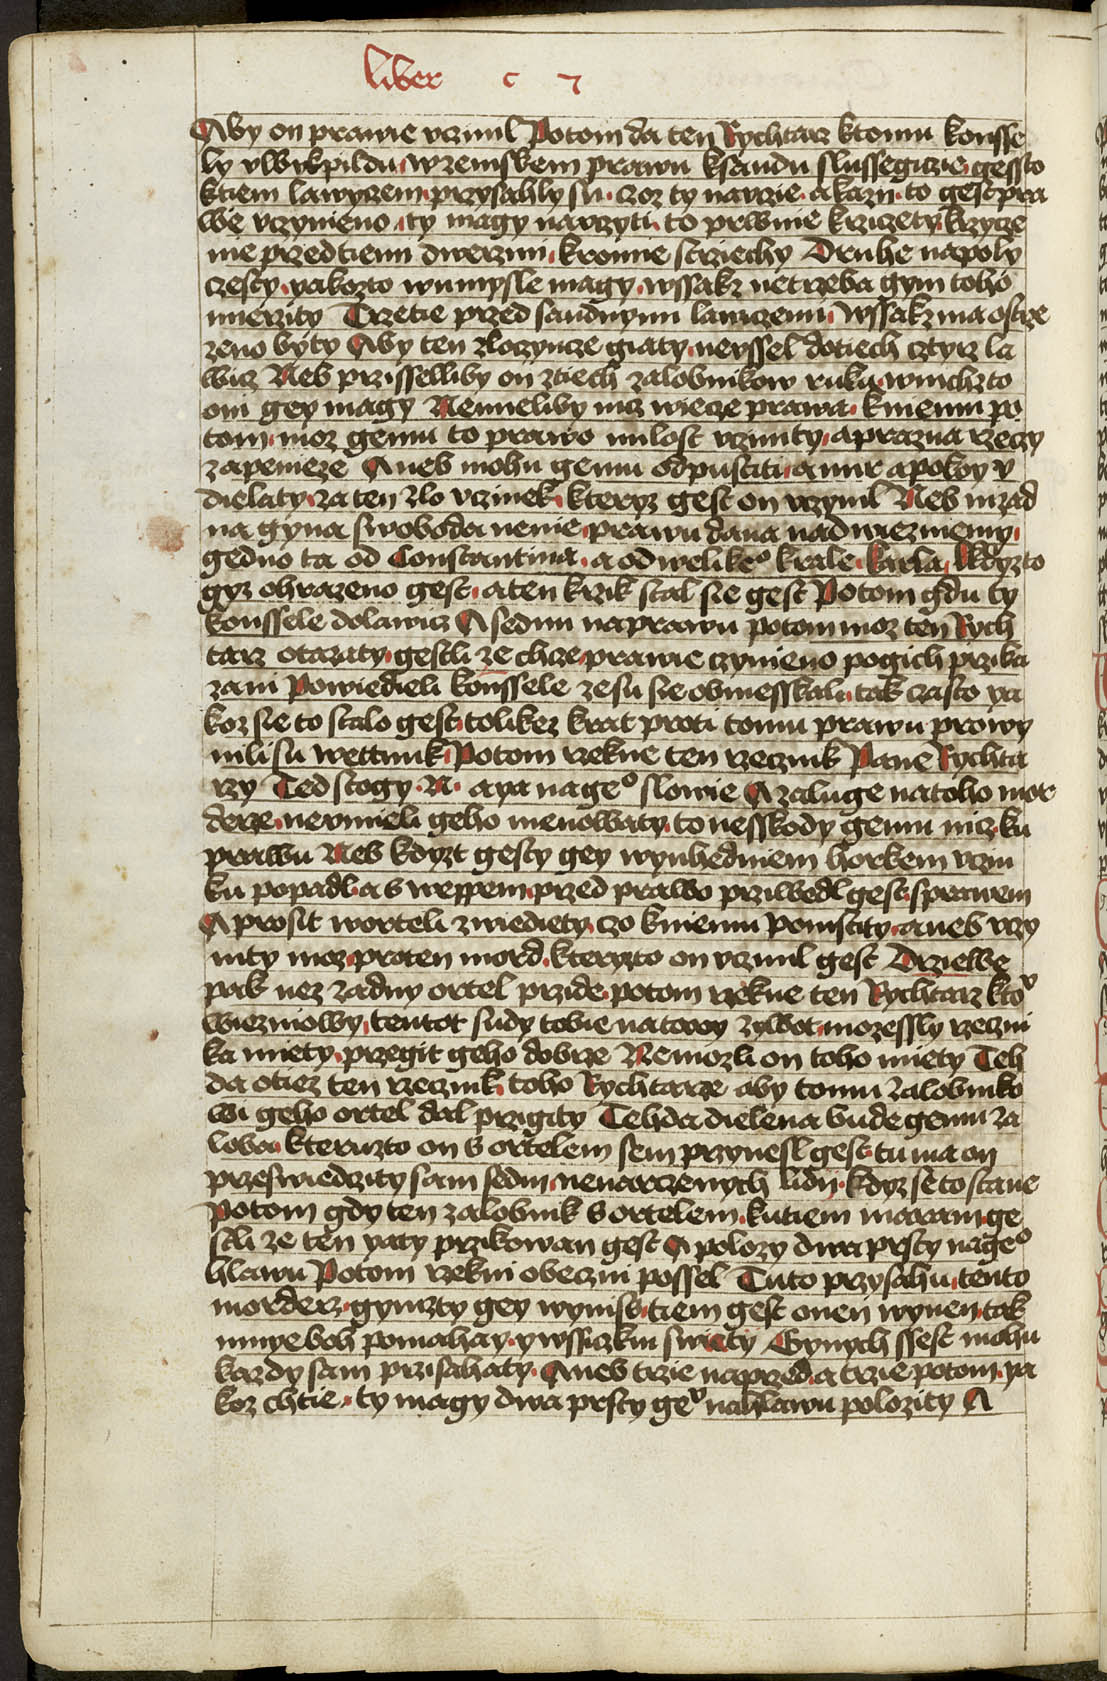 liber c 7
Aby on prawie vczinil Potom da ten Rychtarz ktomu konsse
ly vlbykpildu wzemskem prawu ksandu slussegiczie gessto
ktiem lawyczem przysahly su czoz ty navczie akazii to gest pra
we vczynieno ty magy navczyti to prwnie krziczety krzycze
nie przedtiem dwerzmi kromie strziechy Druhe napoly
czesty yakozto wumysle magy wssakz netrzeba gym toho
mierzity Trzetie przed saudnymi lawiczemi wssakz ma ostrze
zeno byty Aby ten zloczyncze giaty neyssel dotiech cztyrz la
wicz Neb przisselliby on ztiech zalobnikow ruku wnichzto
oni gey magy Nemieliby nicz wiecze prawa kniemu po
tom moz gemu to prawo milost vcziniti aprazna rzeczy
zapenieze Aneb mohu gemu odpustiti amir apokoy v
dielaty za ten zlo vczinek kteryz gest on vczynil Neb nizad
na gyna swoboda nenie prawu dana nad wieznemy
gedno ta od Constantina a od welikeº krale karla kdyzto
gyz ohrazeno gest aten krzik stal sie gest Potom gdu ty
konssele dolawicz A sednu naprawu potom moz ten Rych
tarz otazaty gestli ze chcze prawie czynieno pogich przika
zani Powiedieli konssele ze su sie obmesskali tak czasto ya
koz sie to stalo gest tolikez krat proti tomu prawu prowy
nili su wettunk Potom rzekne ten rzecznik Pane Rychta
rzy Ted stogy N aya nageº slowie A zaluge natoho mor
derze neumieli geho menowaty to nesskody gemu nicz ku
prawu Neb kdyzt gesty gey wynhedniem horkem vczin
ku popadl a s wepprem przed prawo przwedl gest sprawem
A prosit worteli zwiediety czo kniemu pomstity aneb vczy
nity moz proten mord kteryzto on vczinil gest Drziewe
pak nez zadny ortel przide potom rzekne ten Rychtarz ktoᵛ
wiezniowy tentot sudy tobie natwoy zywot mozessly rzeczni
ka miety przegit geho dobrze Nemozli on toho miety Teh
da otiez ten rzecznik toho Rychtarze aby tomu zalobniko
wi geho ortel dal przigity Tehda dielena bude gemu za
loba kteruzto on s ortelem sem przynesl gest tu ma on
przeswiedczity sam sedm nenarczenych lidij kdyz se to stane
Potom gdy ten zalobnik s ortelem kutiem maram ge
stli ze ten yaty przikowan gest A polozy dwa prsty nageº
hlawu Potom rzekni obeczni possel Tuto przysahu tento
morderz gymzty gey wynis tiem gest onen wynen tak
mnye boh pomahay y wssiczkni swieti Gynych ssest mohu
kazdy sam przisahaty Aneb trzie naprzed a trzie potom ya
koz chtie ty magy dwa prsty geᵛ nahlawu polozity A